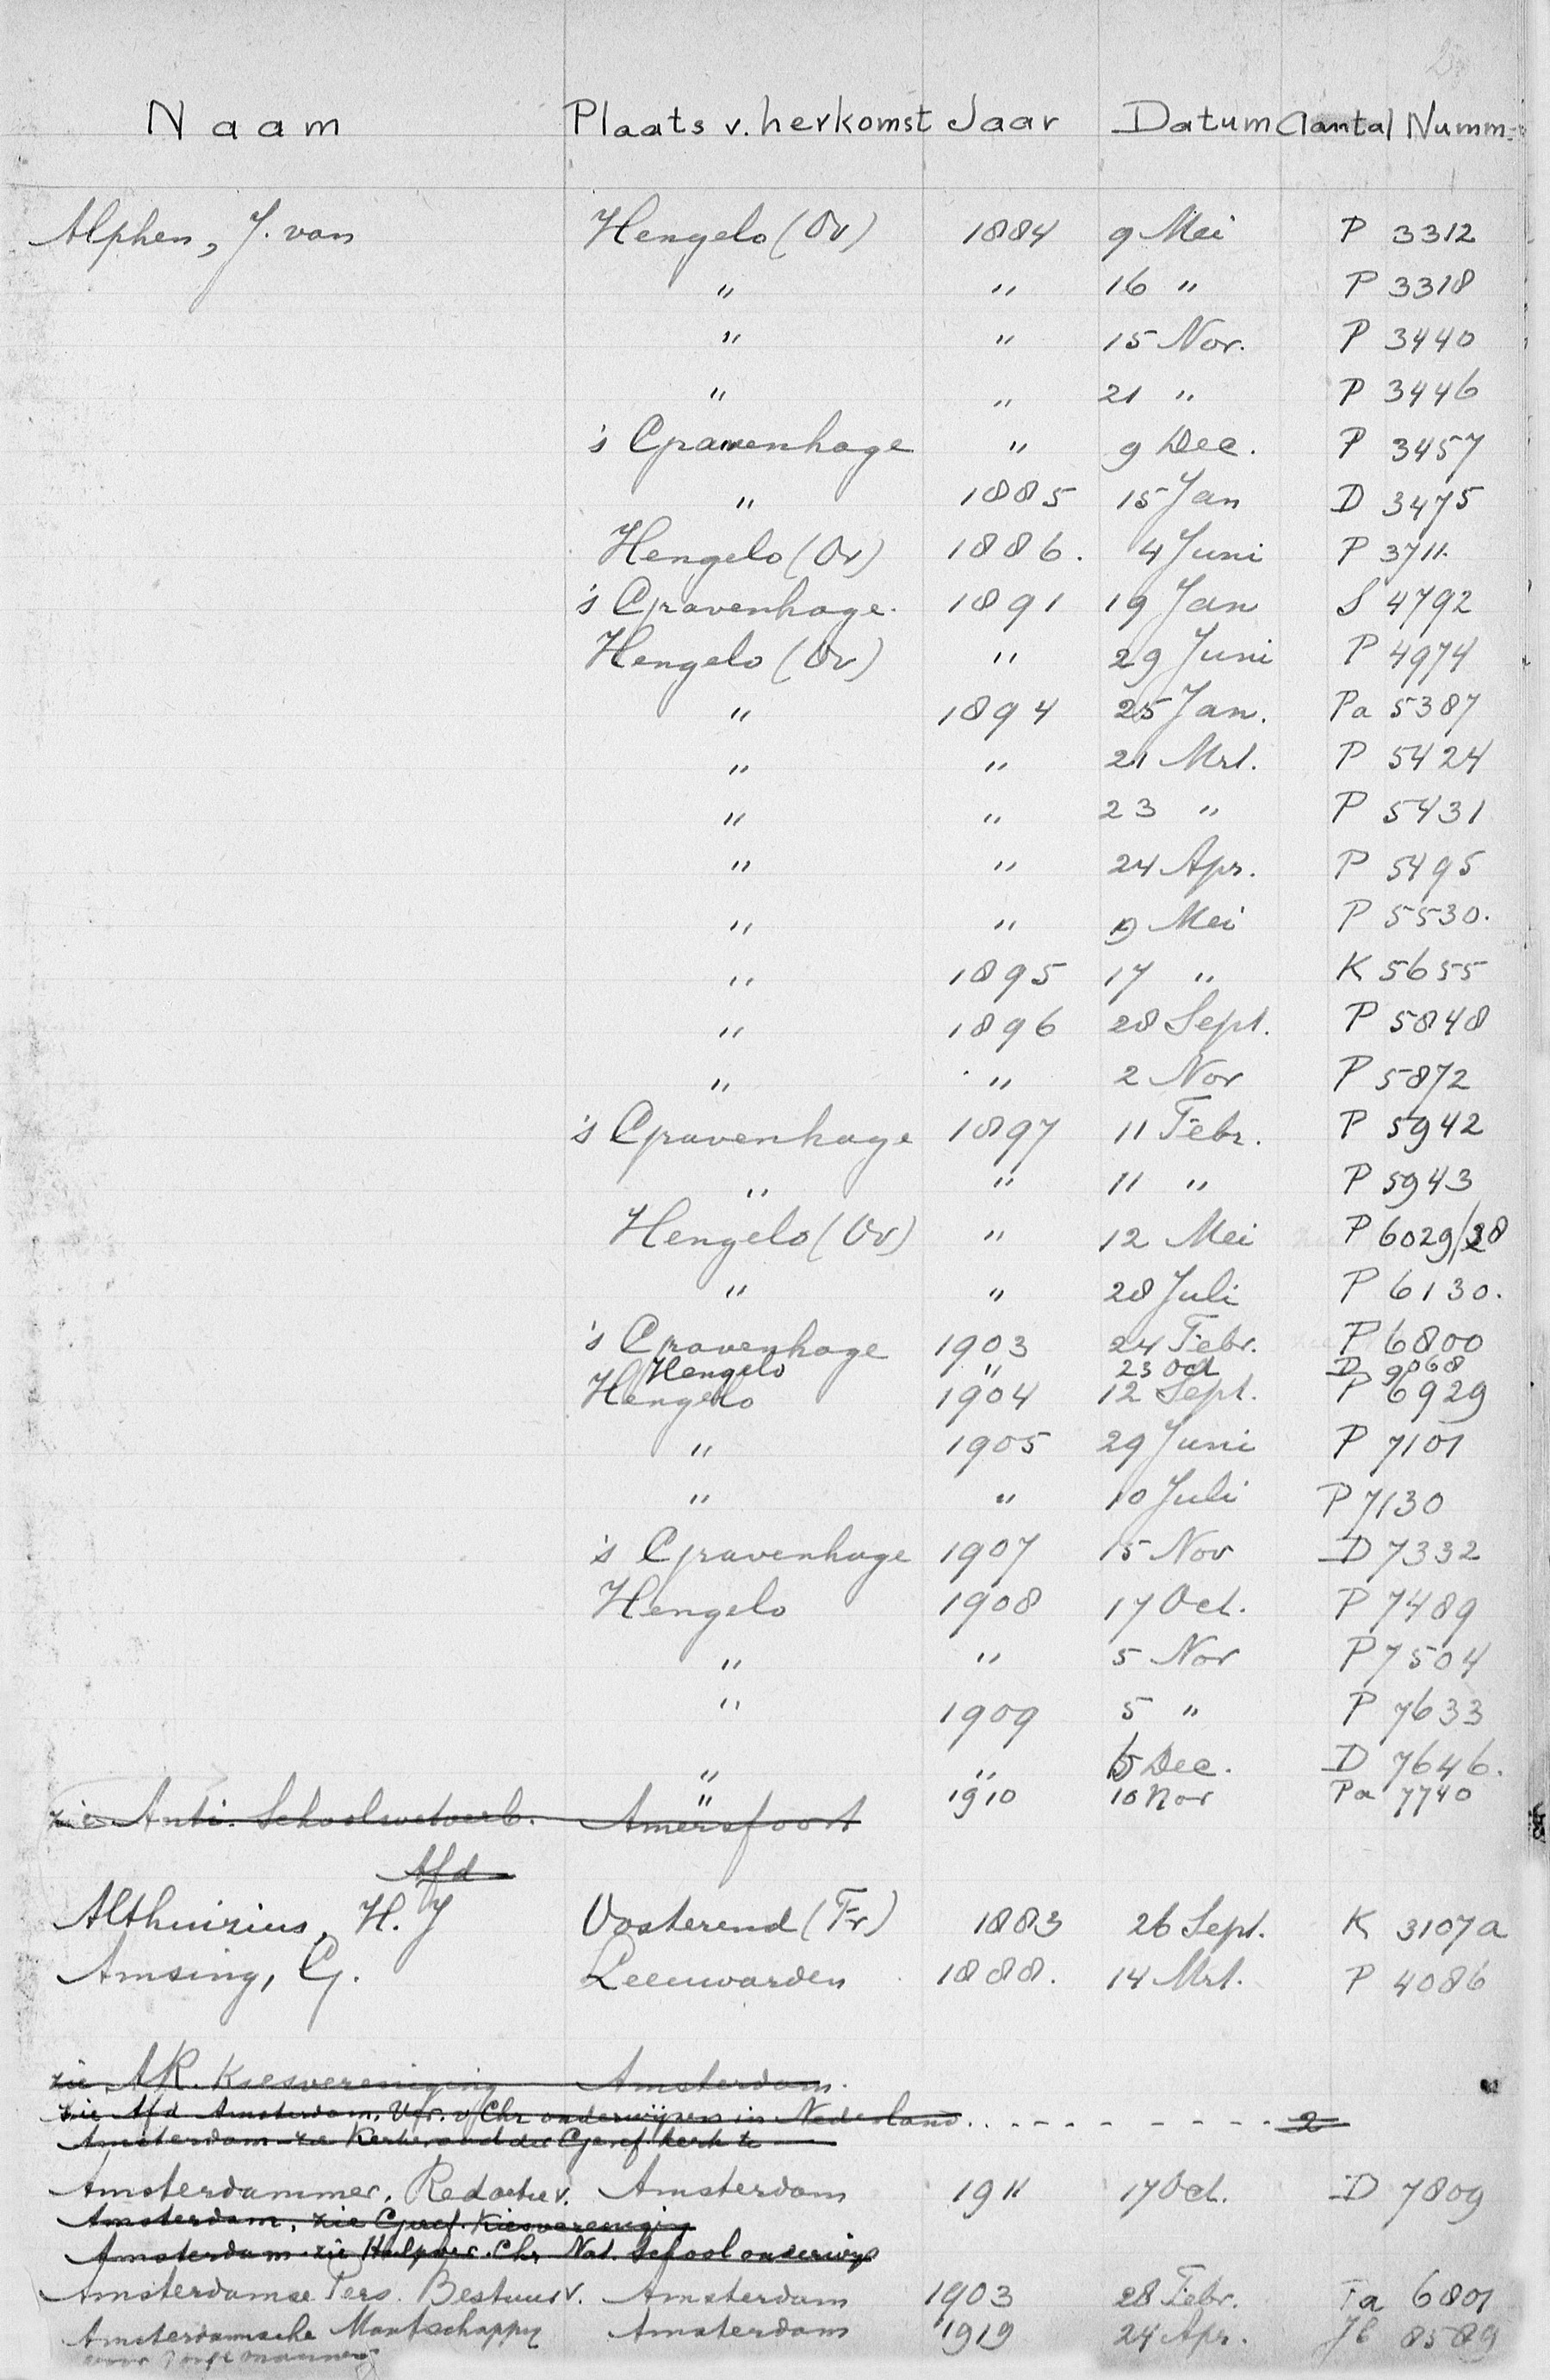 Naam Plaats v. herkomst Jaar Datum Aantal Numm
Alphen, J. van Hengelo (Ov) 1884 9 Mei P 3312
" " 16 " P 3318
" " 15 Nov. P 3440
" " 21 " P 3446
's Gravenhage " 9 Dec. P 3457
" 1885 15 Jan D 3475
Hengelo (Ov) 1886. 4 Juni P 3711.
's Gravenhage. 1891 19 Jan S 4792
Hengelo (Ov) " 29 Juni P 4974
" 1894 25 Jan. Pa 5387
" " 21 Mrt. P 5424
" " 23 " P 5431
" " 24 Apr. P 5495
" " 9 Mei P 5530.
" 1895 17 " K 5655
" 1896 28 Sept. P 5848
" " 2 Nov P 5872
's Gravenhage 1897 11 Febr. P 5942
" " 11 " P 5943
Hengelo (Ov) " 12 Mei P 6029/28
" " 28 Juli P 6130.
's Gravenhage 1903 24 Febr. P 6800
Hengelo " 23 Oct D 9068
Hengelo 1904 12 Sept. P 6929
" 1905 29 Juni P 7101
" " 10 Juli P 7130
's Gravenhage 1907 15 Nov D 7332
Hengelo 1908 17 Oct. P 7489
" " 5 Nov P 7504
" 1909 5 " P 7633
" " Dec. D 7646.
" 1910 10 Nov Pa 7740
zie Anti. Schoolwetverb. Amersfoort
Afd
Althuizius, H. J Oosterend (Fr) 1883 26 Sept. K 3107a
Amsing, G. Leeuwarden 1888. 14 Mrt. P 4086
zie AR. Kiesvereniging Amsterdam.
zie Afd Amsterdam, Ver. v Chr onderwijzers in Nederland. 2
Amsterdam zie Kerkeraad der Geref. kerk te
Amsterdammer, Redactie v. Amsterdam 1911 17 Oct. D 7809
Amsterdam, zie Geref. Kiesvereniging
Amsterdam zie Hulpver. Chr Nat. Schoolonderwijs
Amsterdamse Pers. Bestuur v. Amsterdam 1903 28 Febr. Pa 6801
Amsterdamsche Maatschappy Amsterdam 1919 24 Apr. 8589
voor Jongemannen